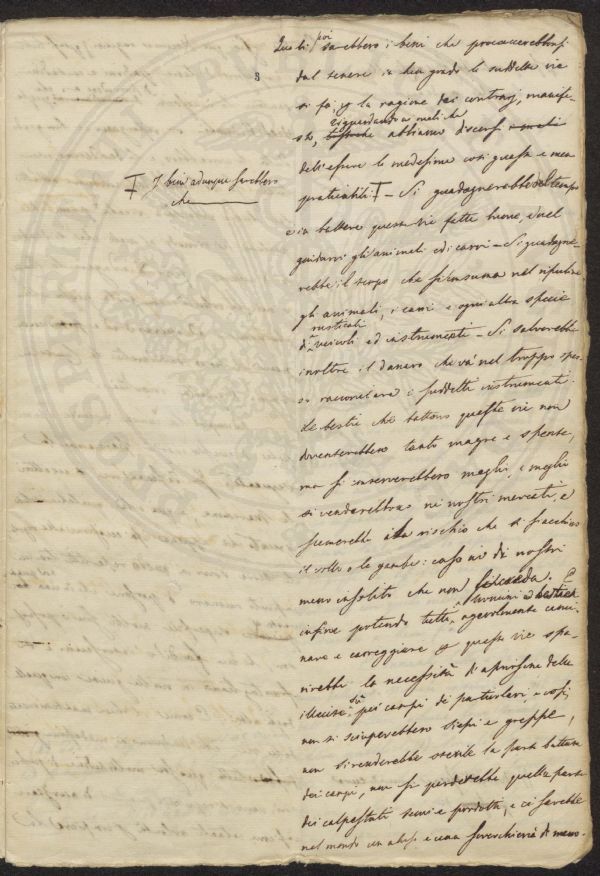 Quali poi sarebbero i beni che procaccerebbonsi
dal tenere in buon grado le suddette vie
si fa, per la ragione dei contrarj, manife-
sto, riguardando ai mali che
abbiamo discorsi
dell'essere le medesime così guaste e mea
praticabili. Ŧ – Si guadagnerebbe del tempo
Ŧ I beni adunque sarebbero
che
e in battere queste vie fatte buone, e nel
guidarvi gli animali ed i carri – Si guadagne-
rebbe il tempo che si consuma nel ripulire
gli animali, i carri e ogni altra specie
di rusticali veicoli ed instrumenti – Si salverebbe
inoltre il danaro che va nel troppo spes-
so racconciare i suddetti instrumenti.
Le bestie che battono queste vie non
diventerebbero tanto magre e spente,
ma si conserverebbero meglio, e meglio
si venderebbono nei nostri mercati, e
scemerebbe il rischio che si fiacchino
il collo o le gambe: caso ai dì nostri
meno insolito che non si creda. E
infine potendo tutti uomini e bestie agevolmente cam̄i-
nare e carreggiare per queste vie spa-
rirebbe la necessità d'aprirsene delle
illecite su pei campi dei particolari, e così
non si sciuperebbero siepi e greppe,
non si renderebbe sterile la parte battuta
dei campi, non si perderebbe quella parte
dei calpestati semi e prodotti, e ci sarebbe
nel mondo un abuso e una soverchieria di meno.